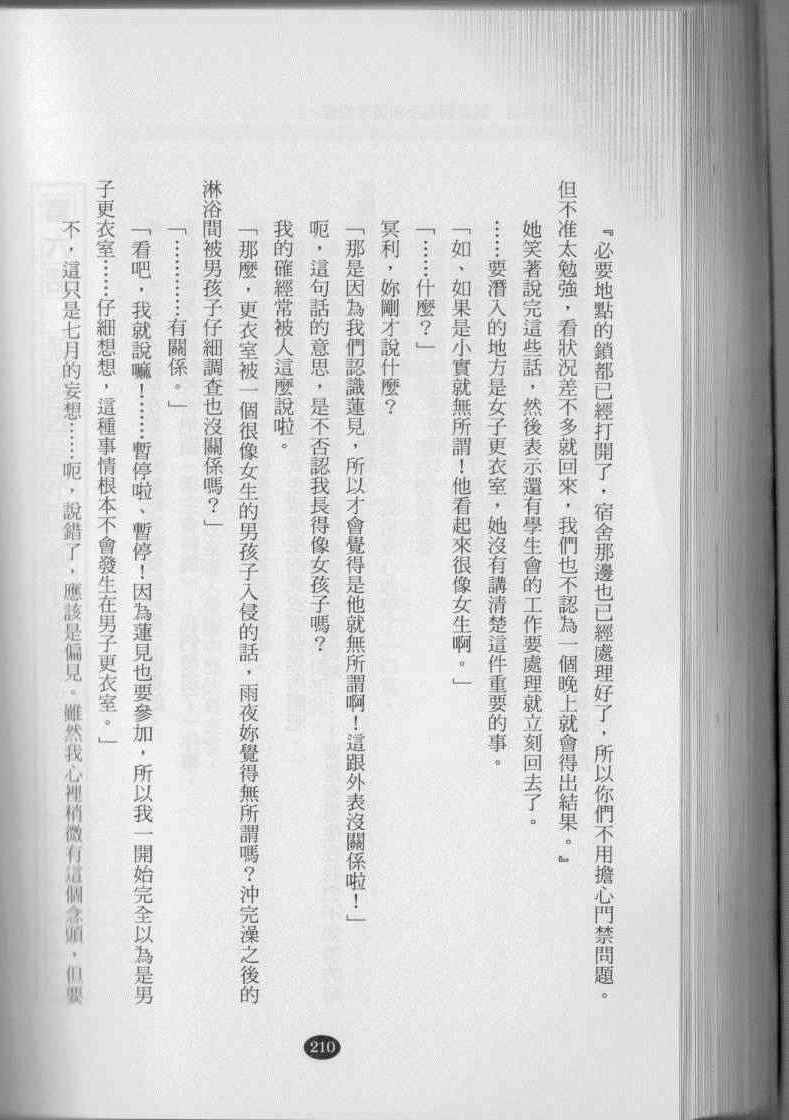 『必要地點的鎖都已經打開了，宿舍那邊也已經處理好了，所以你們不用擔心門禁問題。
但不准太勉強，看狀況差不多就回來，我們也不認為一個晚上就會得出結果。』
她笑著說完這些話，然後表示還有學生會的工作要處理就立刻回去了。
……要潛入的地方是女子更衣室，她沒有講清楚這件重要的事。
「如、如果是小實就無所謂！他看起來很像女生啊。」
「……什麼？」
冥利，妳剛才說什麼？
「那是因為我們認識蓮見，所以才會覺得是他就無所謂啊！這跟外表沒關係啦！」
呃，這句話的意思，是不否認我長得像女孩子嗎？
我的確經常被人這麼說啦。
「那麼，更衣室被一個很像女生的男孩子入侵的話，雨夜妳覺得無所謂嗎？沖完澡之後的
淋浴間被男孩子仔細調查也沒關係嗎？」
「…………有關係。」
「看吧，我就說嘛！……暫停啦、暫停！因為蓮見也要參加，所以我一開始完全以為是男
子更衣室……仔細想想，這種事情根本不會發生在男子更衣室。」
不，這只是七月的妄想……呃，說錯了，應該是偏見。雖然我心裡稍微有這個念頭，但要
210